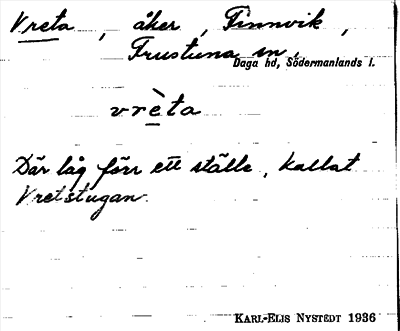 Vreta, åker, Finnvik,
Frustuna sn.
Daga hd, Södermanlands l.
vrèta
Där låg förr ett ställe, kallat
Vretstugan.
KARL-ELIS NYSTEDT 1936